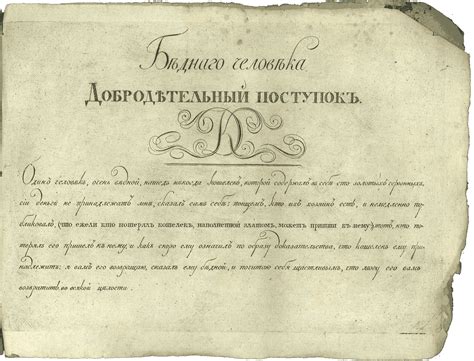 Бѣднаго человѣка
Добродѣтельный поступокъ.
Одинъ человѣкъ, очень бѣдной, нашедъ некогда кошелекъ, которой содержалъ въ себѣ сто золотыхъ
сіи деньги не принадлежатъ мнѣ, сказалъ самъ себѣ: поищемъ, кто ихъ хозяинъ есть, и немедленно пу-
бликовалъ, что ежели кто потерялъ кошелекъ, наполненной златомъ, можетъ притти къ нему; кто по-
терялъ его пришелъ къ нему; и какъ скоро ему означилъ по образу доказательства, что кошелекъ ему при-
надлежитъ: я вамъ его возвращаю, сказалъ ему бѣдной, и почитаю себя щастливымъ, что могу его вамъ
возвратить, во всякой цѣлости.